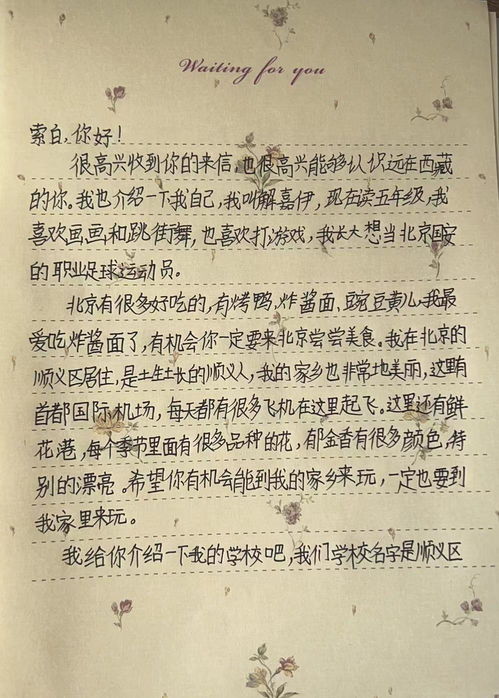 Waiting for you
索白，你好！
很高兴收到你的来信，也很高兴能够认识远在西藏
的你。我也介绍一下我自己，我叫解嘉伊，现在读五年级，我
喜欢画画和跳街舞，也喜欢打游戏，我长大想当北京国安
的职业足球运动员。
北京有很多好吃的，有烤鸭，炸酱面，豌豆黄儿，我最
爱吃炸酱面了，有机会你一定要来北京尝尝美食。我在北京的
顺义区居住，是土生土长的顺义人，我的家乡也非常地美丽，这里有
首都国际机场，每天都有很多飞机在这里起飞。这里还有鲜
花港，每个季节里面有很多品种的花，郁金香有很多颜色，特
别的漂亮。希望你有机会能到我的家乡来玩，一定也要到
我家里来玩。
我给你介绍一下我的学校吧，我们学校名字是顺义区